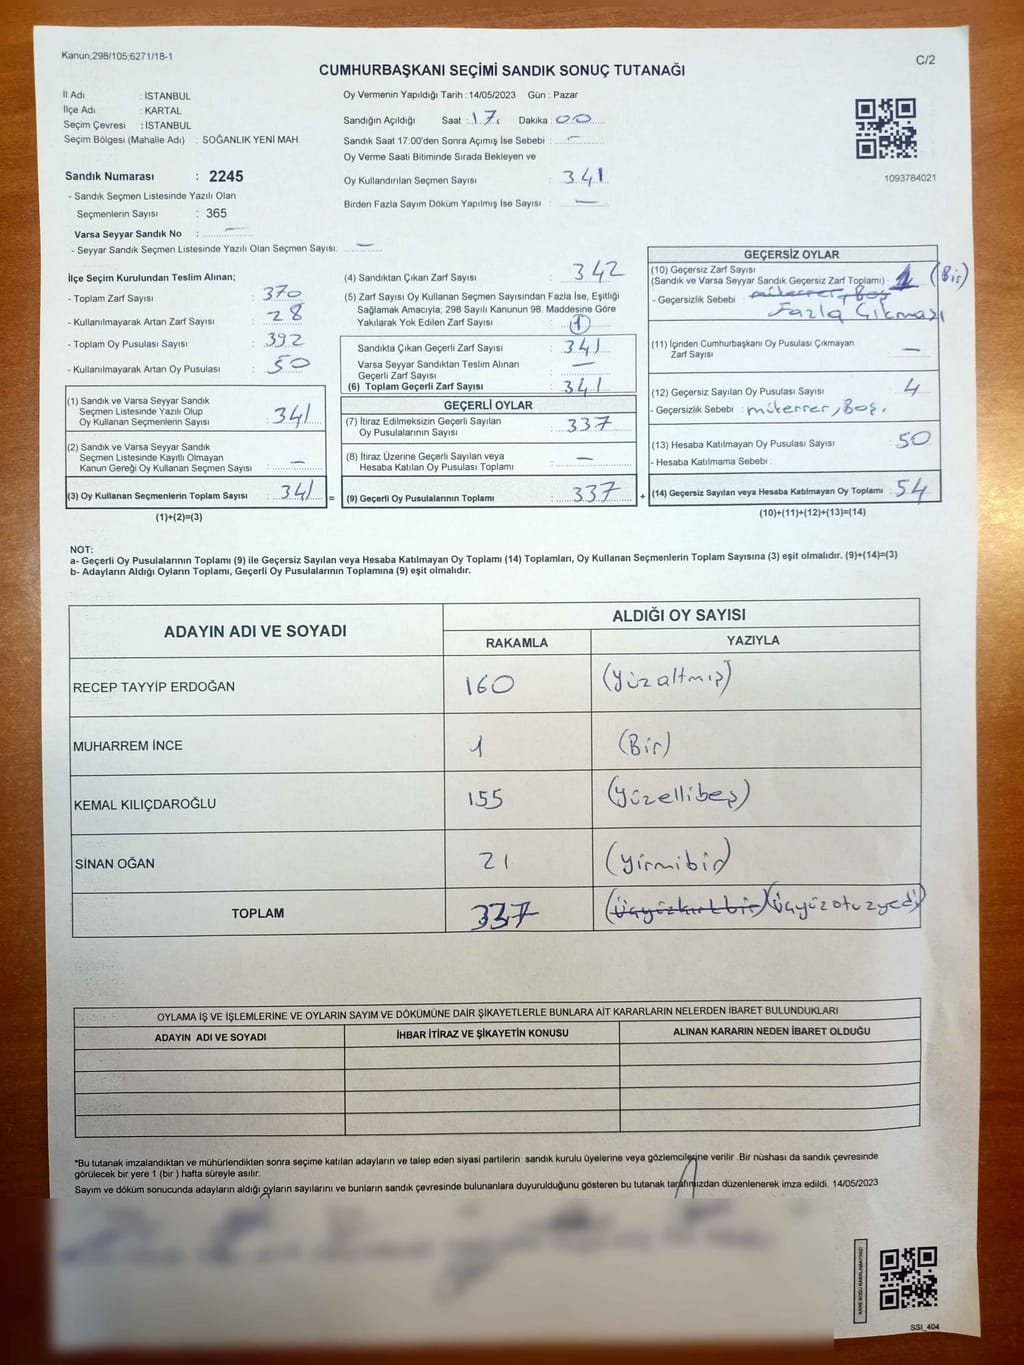 Kanun,298/105;6271/18-1
C/2
CUMHURBAŞKANI SEÇİMİ SANDIK SONUÇ TUTANAĞI
İl Adı : İSTANBUL
İlçe Adı : KARTAL
Seçim Çevresi : İSTANBUL
Seçim Bölgesi (Mahalle Adı) : SOĞANLIK YENİ MAH.
Sandık Numarası : 2245
- Sandık Seçmen Listesinde Yazılı Olan
Seçmenlerin Sayısı : 365
Varsa Seyyar Sandık No : —
- Seyyar Sandık Seçmen Listesinde Yazılı Olan Seçmen Sayısı: —
Oy Vermenin Yapıldığı Tarih :14/05/2023 Gün : Pazar
Sandığın Açıldığı Saat : 17. Dakika : 00
Sandık Saat 17:00'den Sonra Açımış İse Sebebi : —
Oy Verme Saati Bitiminde Sırada Bekleyen ve
Oy Kullandırılan Seçmen Sayısı : 341
Birden Fazla Sayım Döküm Yapılmış İse Sayısı : —
1093784021
İlçe Seçim Kurulundan Teslim Alınan;
- Toplam Zarf Sayısı : 370
- Kullanılmayarak Artan Zarf Sayısı : 28
- Toplam Oy Pusulası Sayısı : 392
- Kullanılmayarak Artan Oy Pusulası : 50
(1) Sandık ve Varsa Seyyar Sandık
Seçmen Listesinde Yazılı Olup
Oy Kullanan Seçmenlerin Sayısı : 341
(2) Sandık ve Varsa Seyyar Sandık
Seçmen Listesinde Kayıtlı Olmayan
Kanun Gereği Oy Kullanan Seçmen Sayısı : —
(3) Oy Kullanan Seçmenlerin Toplam Sayısı : 341 =
(1)+(2)=(3)
(4) Sandıktan Çıkan Zarf Sayısı : 342
(5) Zarf Sayısı Oy Kullanan Seçmen Sayısından Fazla İse, Eşitliği
Sağlamak Amacıyla; 298 Sayılı Kanunun 98. Maddesine Göre
Yakılarak Yok Edilen Zarf Sayısı : 1
Sandıkta Çıkan Geçerli Zarf Sayısı : 341
Varsa Seyyar Sandıktan Teslim Alınan
Geçerli Zarf Sayısı : —
(6) Toplam Geçerli Zarf Sayısı : 341
GEÇERLİ OYLAR
(7) İtiraz Edilmeksizin Geçerli Sayılan
Oy Pusulalarının Sayısı : 337
(8) İtiraz Üzerine Geçerli Sayılan veya
Hesaba Katılan Oy Pusulası Toplamı : —
(9) Geçerli Oy Pusulalarının Toplamı : 337 +
GEÇERSİZ OYLAR
(10) Geçersiz Zarf Sayısı
(Sandık ve Varsa Seyyar Sandık Geçersiz Zarf Toplamı) : 1 (Bir)
- Geçersizlik Sebebi : mükerrer, Boş
Fazla Çıkması
(11) İçinden Cumhurbaşkanı Oy Pusulası Çıkmayan
Zarf Sayısı : —
(12) Geçersiz Sayılan Oy Pusulası Sayısı : 4
- Geçersizlik Sebebi : mükerrer, Boş.
(13) Hesaba Katılmayan Oy Pusulası Sayısı : 50
- Hesaba Katılmama Sebebi :
(14) Geçersiz Sayılan veya Hesaba Katılmayan Oy Toplamı : 54
(10)+(11)+(12)+(13)=(14)
NOT:
a- Geçerli Oy Pusulalarının Toplamı (9) ile Geçersiz Sayılan veya Hesaba Katılmayan Oy Toplamı (14) Toplamları, Oy Kullanan Seçmenlerin Toplam Sayısına (3) eşit olmalıdır. (9)+(14)=(3)
b- Adayların Aldığı Oyların Toplamı, Geçerli Oy Pusulalarının Toplamına (9) eşit olmalıdır.
ADAYIN ADI VE SOYADI
ALDIĞI OY SAYISI
RAKAMLA YAZIYLA
RECEP TAYYİP ERDOĞAN 160 (Yüzaltmış)
MUHARREM İNCE 1 (Bir)
KEMAL KILIÇDAROĞLU 155 (Yüzellibeş)
SİNAN OĞAN 21 (Yirmibir)
TOPLAM 337 (Üçyüzkırkbir) (Üçyüzotuzyedi)
OYLAMA İŞ VE İŞLEMLERİNE VE OYLARIN SAYIM VE DÖKÜMÜNE DAİR ŞİKAYETLERLE BUNLARA AİT KARARLARIN NELERDEN İBARET BULUNDUKLARI
ADAYIN ADI VE SOYADI İHBAR İTİRAZ VE ŞİKAYETİN KONUSU ALINAN KARARIN NEDEN İBARET OLDUĞU
*Bu tutanak imzalandıktan ve mühürlendikten sonra seçime katılan adayların ve talep eden siyasi partilerin sandık kurulu üyelerine veya gözlemcilerine verilir .Bir nüshası da sandık çevresinde
görülecek bir yere 1 (bir ) hafta süreyle asılır.
Sayım ve döküm sonucunda adayların aldığı oyların sayılarını ve bunların sandık çevresinde bulunanlara duyurulduğunu gösteren bu tutanak tarafımızdan düzenlenerek imza edildi. 14/05/2023
KARE KODU KARALAMAYINIZ!
SSI_404